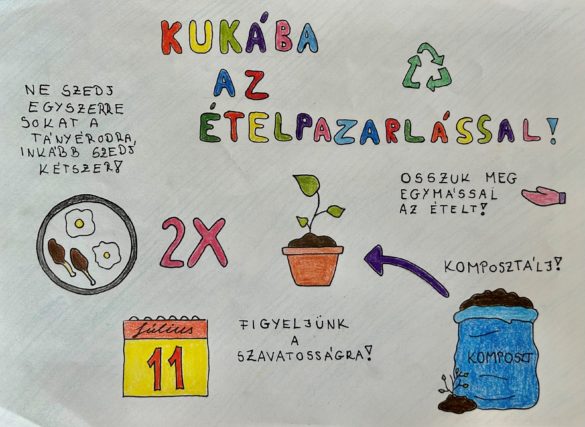 KUKÁBA
AZ
ÉTELPAZARLÁSSAL!
NE SZEDJ
EGYSZERRE
SOKAT A
TÁNYÉRODRA,
INKÁBB SZEDJ
KÉTSZER!
2X
OSSZUK MEG
EGYMÁSSAL
AZ ÉTELT!
KOMPOSZTÁLJ!
KOMPOSZT
Július
11
FIGYELJÜNK
A
SZAVATOSSÁGRA!